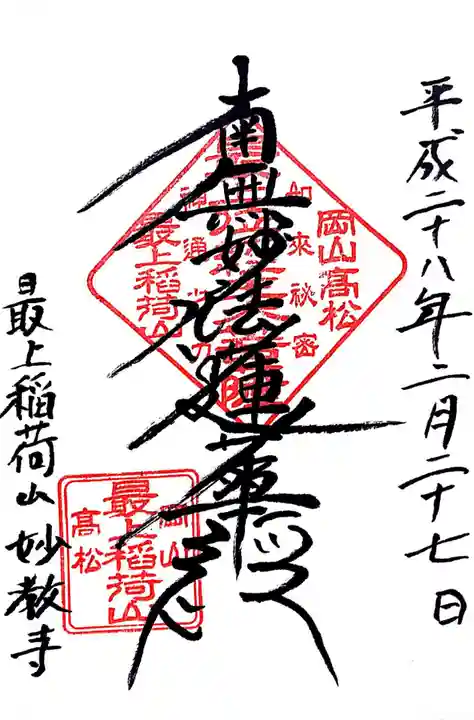 平成二十八年二月二十七日
南無妙法蓮華経
岡山高松
如來祕密
神通之力
最上稲荷山
岡山
最上稲荷山
髙松
最上稲荷山 妙教寺